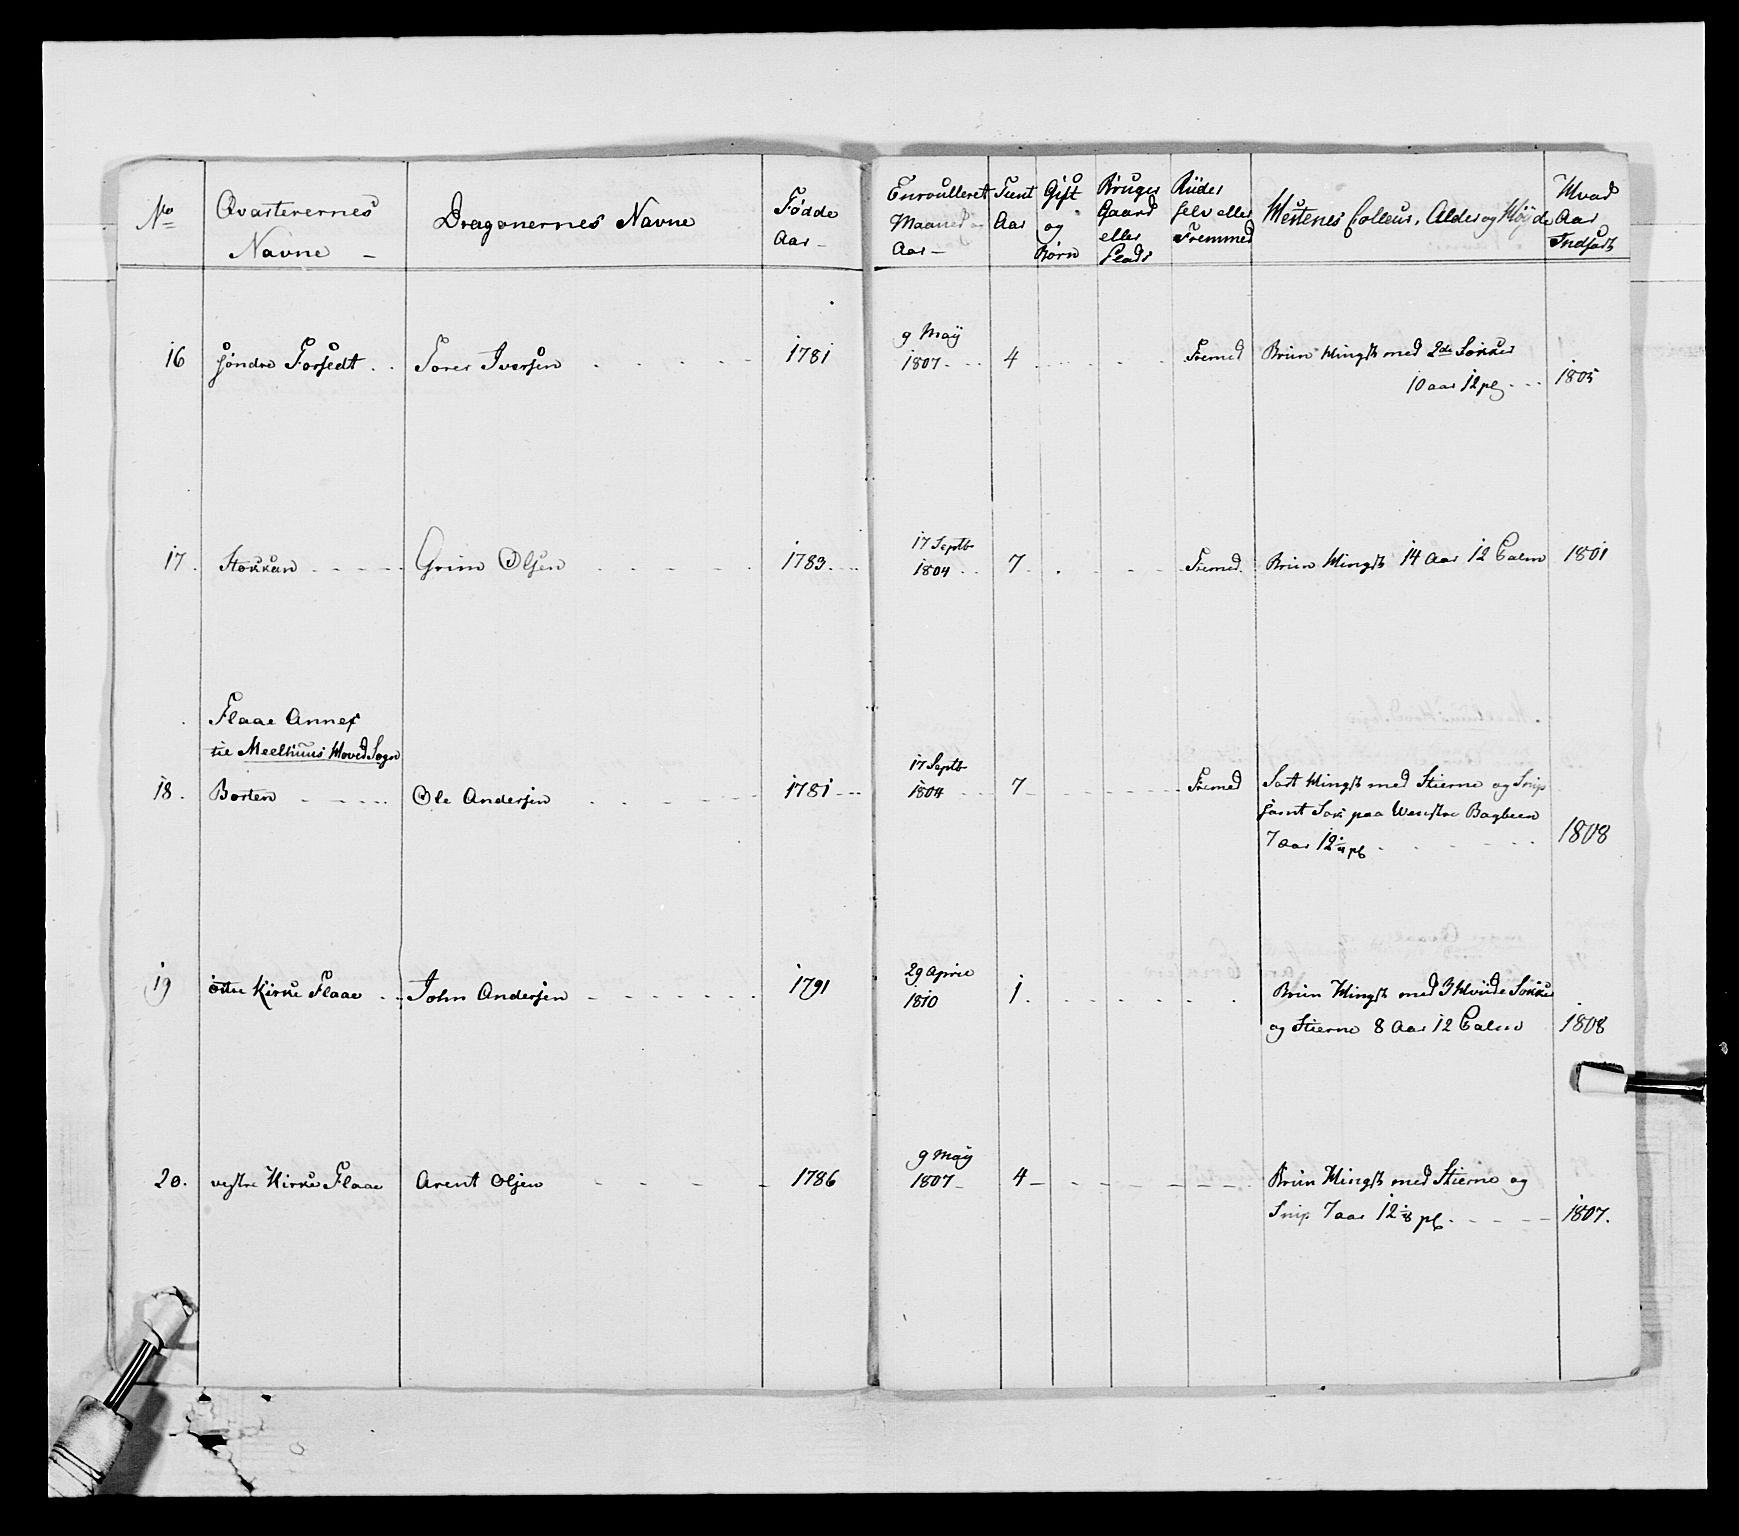 No
Qvarterernes
Navne
Dragonernes Navne
Fødde
Aar
Enroulleret
Maaned og
Aar
Tient
Aar
Gift
og
Børn
Bruger
Gaard
eller
Plads
Riider
selv eller
Fremmed
Hestenes Colleur, Alder og Høyde
Hvad
Aar
Indsadt
16 Søndre Forsedt Tores Iversen 1781 9 Maÿ
1807 4 Fremed Bruun Hingst med 2de Sokker
10 aar 12 pl 1805
17. Stokkan Grim Olsen 1783 17 Septb
1804 7 Fremed Bruun Hingst 14 Aar 12 Palm 1801
Flaae Annex
til Meelhuus Hoved Sogn
18. Borten Ole Andersen 1781 17 Septb
1804 7 Fremed Sort Hingst med Stierne og Snip
samt Sok paa Wenstre Bagbeen
7 aar 12 pl 1808
19 Kirke Flaae John Andersen 1791 29 April
1810 1 Bruun Hingst med 3 Hviide Sokker
og Stierne 8 Aar 12 Palm 1808
20. vestre Kirke Flaae Arent Olsen 1786 9 Maÿ
1807 4 Bruun Hingst med Stierne og
Snip 7 aar 12 pl 1807.